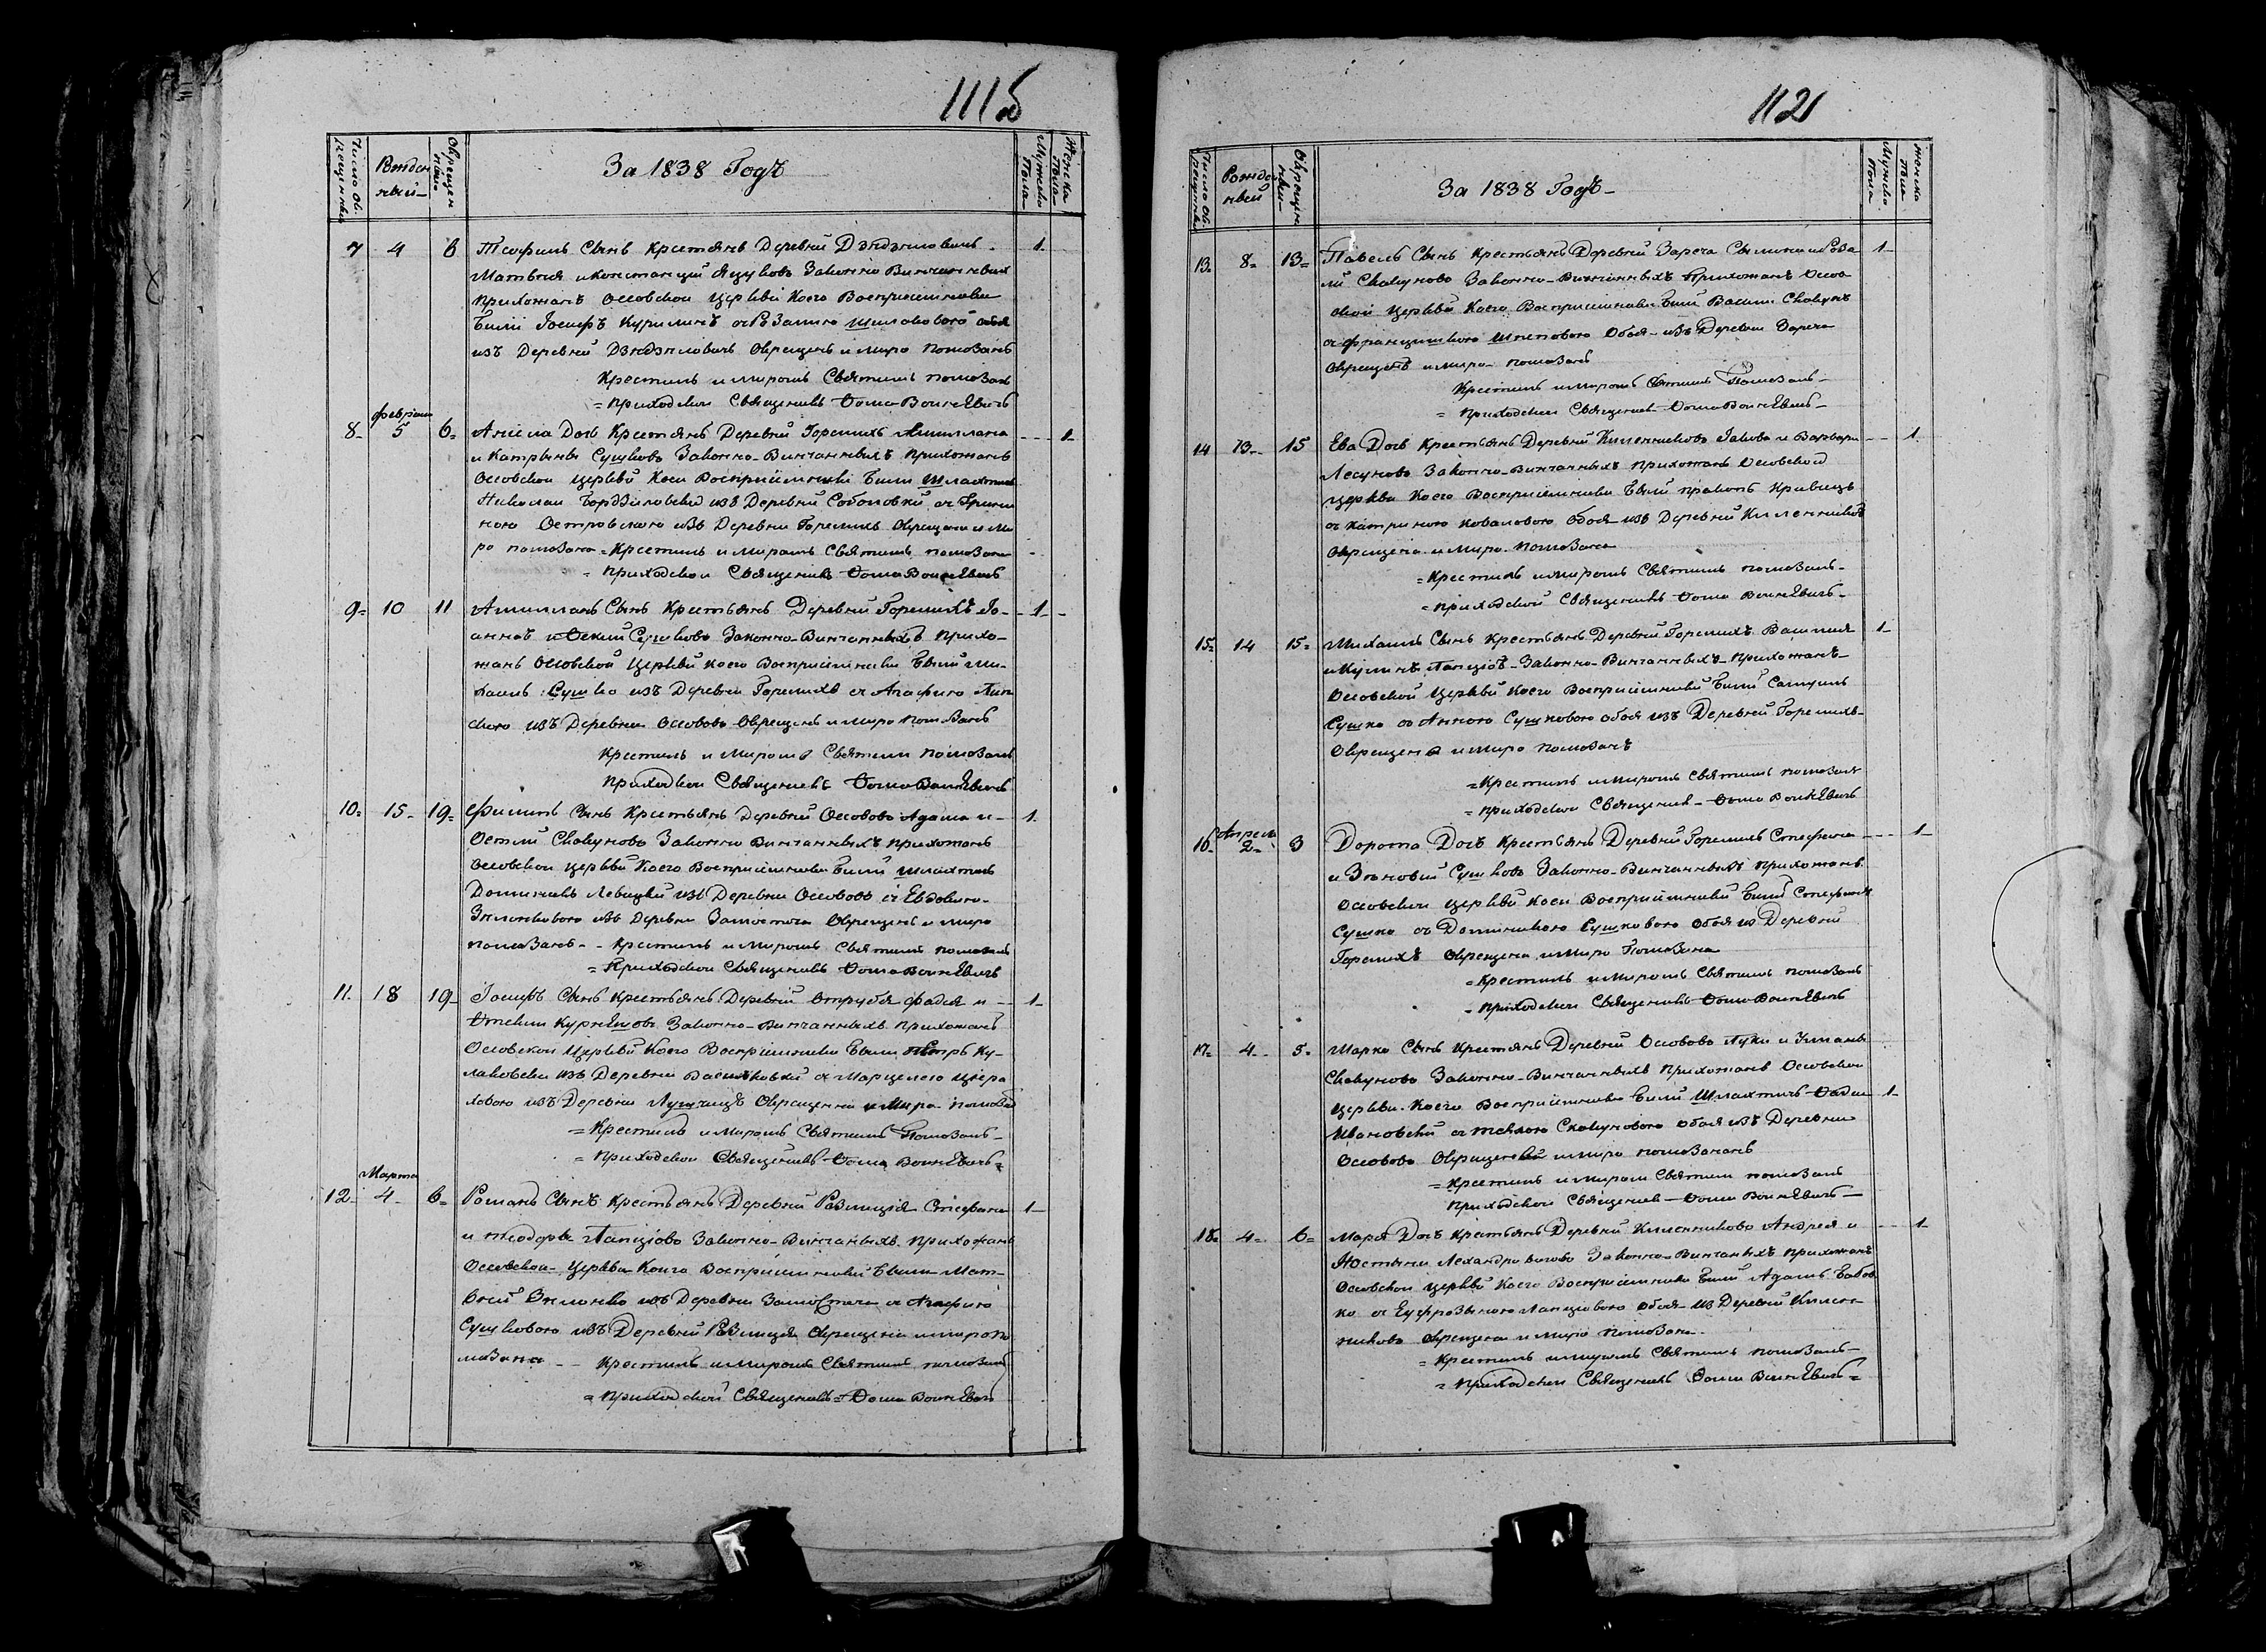 111б
Число Об.
рещенныхъ
Рожден
ный
Окрещен
ный
За 1838 Годъ
Мужеска
Пола
Женска
Пола
7 4 6 Теофилъ Сынъ Крестянъ Деревни Дзядзиловичъ 1
Матвея и Констанціи Яцуково Законно Винчанныхъ
Прихожанъ Оссовской Церкви Коего Восприемники
Были Іосифъ Курилинъ съ Розалию Шиловового обоя
изъ Деревни Дзядзиловичъ Окрещенъ и миро помозанъ
Крестилъ и миромъ Святимъ помозалъ
= Приходскои Священникъ Фома Воинѣвичъ
февраля
8 5 6 Аніела Дочь Крестянъ Деревни Горелихъ 1
и Катрыны Сушково Законно-Винчанныхъ Прихожанъ
Оссовской Церкви Коеи Восприемники Были Шляхтичъ
Николаи изъ Деревни Соболовки съ
ною Островского изъ Деревни Горелихъ Окрещена и ми
ро помозана = Крестилъ и миромъ Святимъ помозалъ
= Приходскои Священникъ Фома Воинѣвичъ
9 10 11 Сынъ Крестьянъ Деревни Горелихъ Іо- 1
аннаъ и Сушково Законно-Винчанныхъ Прихо-
жанъ Оссовской Церкви Коего Восприемники Были Ми-
хаилъ Сушко изъ Деревни Горелихъ съ Агафию
ского изъ Деревни Оссовово Окрещенъ и миро помозанъ
Крестилъ и Миромъ Святимъ помозалъ
Приходскои Священникъ Фома Воинѣвичъ
10 15 19 Филипъ Сынъ Крестьянъ Деревни Оссовово Адама и 1
Скакуново Законно Винчанныхъ прихожанъ
Оссовской Церкви Коего Восприемники Были Шляхтичъ
Доминикъ Левицкій изъ Деревни Оссовово съ Евдокию
изъ Деревни Замосточа Окрещенъ и миро
помозанъ - Крестилъ и миромъ Святимъ помозалъ
= Приходскои Священникъ Фома Воинѣвичъ
11 18 19 Іосифъ Сынъ Крестьянъ Деревни Отрубя Фадея и 1
Законно-Винчанныхъ прихожанъ
Оссовской Церкви Коего Восприемники Были Петръ Ку-
лаковски изъ Деревни Васильковки съ Марцелею
лового изъ Деревни Окрещенна и Миро помоза
= Крестилъ и миромъ Святимъ Помозалъ
= Приходскои Священникъ Фома Воинѣвичъ
Марта
12 4 6 Романъ Сынъ Крестьянъ Деревни Стефана 1
и Теодоры Лапціово Законно-Винчаныхъ Прихожанъ
Оссовскои Церкви Коиго Восприемники Были Мат-
вей изъ Деревни Замосточа съ Агафию
Сушкового изъ Деревни Окрещена и миро по
мазана - Крестилъ и миромъ Святимъ помозалъ
= Приходской Священникъ = Фома Воинѣвичъ
112
Число Об.
рещенныхъ
Рожден
ный
Окрещен
ный
За 1838 Годъ
Мужеска
Пола
Женска
Пола
13 8 13 Павелъ Сынъ Крестьянъ Деревни Зареча Сымона и Роза 1
ли Скакуново Законно-Винчанныхъ Прихожанъ Оссов
ской Церкви Коего Восприемники Были Васили Скакунъ
съ Францишкою обоя изъ Деревни Зареча
Окрещенъ и миро помозанъ
Крестилъ и миромъ Святимъ Помозалъ
= Приходскои Священникъ Фома Воинѣвичъ
14 13 15 Ева Дочь Крестьянъ Деревни Киленниково Іакова и Варвары 1
Лесуново Законно-Винчанныхъ прихожанъ Оссовской
Церкви Коего Восприемники Были Кравецъ
съ Катриною Ковалового обоя изъ Деревни Киленниково
Окрещена и миро помозана
= Крестилъ и миромъ Святимъ помозалъ
= приходской Священникъ Фома Воинѣвичъ
15 14 15 Михаилъ Сынъ Крестьянъ Деревни Горелихъ Василия 1
и Лапціовъ Законно-Винчанныхъ Прихожанъ
Оссовской Церкви Коего Восприемники Были Самуилъ
Сушко съ Анною Сушкового обоя изъ Деревни Горелихъ
Окрещена и миро помозанъ
= Крестилъ и миромъ Святимъ помозалъ
= приходскои Священникъ Фома Воинѣвичъ
Апреля
16 2 3 Дорота Дочь Крестьянъ Деревни Горелихъ Стефана 1
и Зѣновіи Сушково Законно-Винчанныхъ Прихожанъ
Оссовскои Церкви Коеи Восприемники Были Стефанъ
Сушко съ Доминикою Сушкового обоя из Деревни
Горелихъ окрещена и миро Помозана
= Крестилъ и миромъ Святимъ помозалъ
= Приходскои Священникъ Фома Воинѣвичъ
17 4 5 Марко Сынъ Крестянъ Деревни Оссовово Луки и Ульяны
Скакуново Законно-Винчанныхъ Прихожанъ Оссовскои
Церкви Коего Восприемники Были Шляхтичъ Фадеи 1
Ивановский съ Теклою Скакунового обоя изъ Деревни
Оссовово Окрещенъ и миро помозанъ
= Крестилъ и миромъ Святим помозалъ
Приходскои Священник Фома Воинѣвичъ
18 4 6 Марія Дочь Крестьянъ Деревни Киленниково Андрея и 1
Настыни Законно-Винчаныхъ прихожанъ
Оссовскои Церкви Коего Восприемники Были Адамъ Бабов
ко съ Еуфрозыною Лапціового обоя из Деревни Килен
никово Окрещена и миро помозана
= Крестилъ и миромъ Святимъ помозалъ
= Приходскои Священникъ Фома Воинѣвичъ =